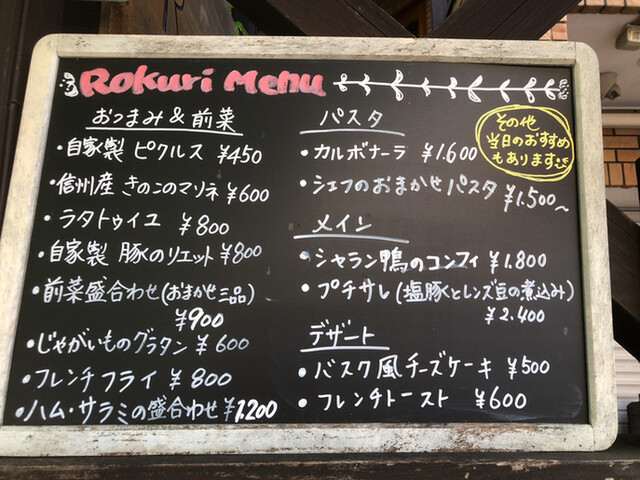 Rokuri Menu
おつまみ & 前菜
・自家製 ピクルス ¥450
・信州産 きのこのマリネ ¥600
・ラタトゥイユ ¥800
・自家製 豚のリエット ¥800
・前菜盛合わせ(おまかせ三品)
¥900
・じゃがいものグラタン ¥600
・フレンチフライ ¥800
・ハム・サラミの盛合わせ ¥1.200
パスタ
・カルボナーラ ¥1.600
・シェフのおまかせパスタ ¥1.500~
メイン
・シャラン鴨のコンフィ ¥1.800
・プチサレ(塩豚とレンズ豆の煮込み)
¥2.400
デザート
・バスク風チーズケーキ ¥500
・フレンチトースト ¥600
その他
当日のおすすめ
もあります